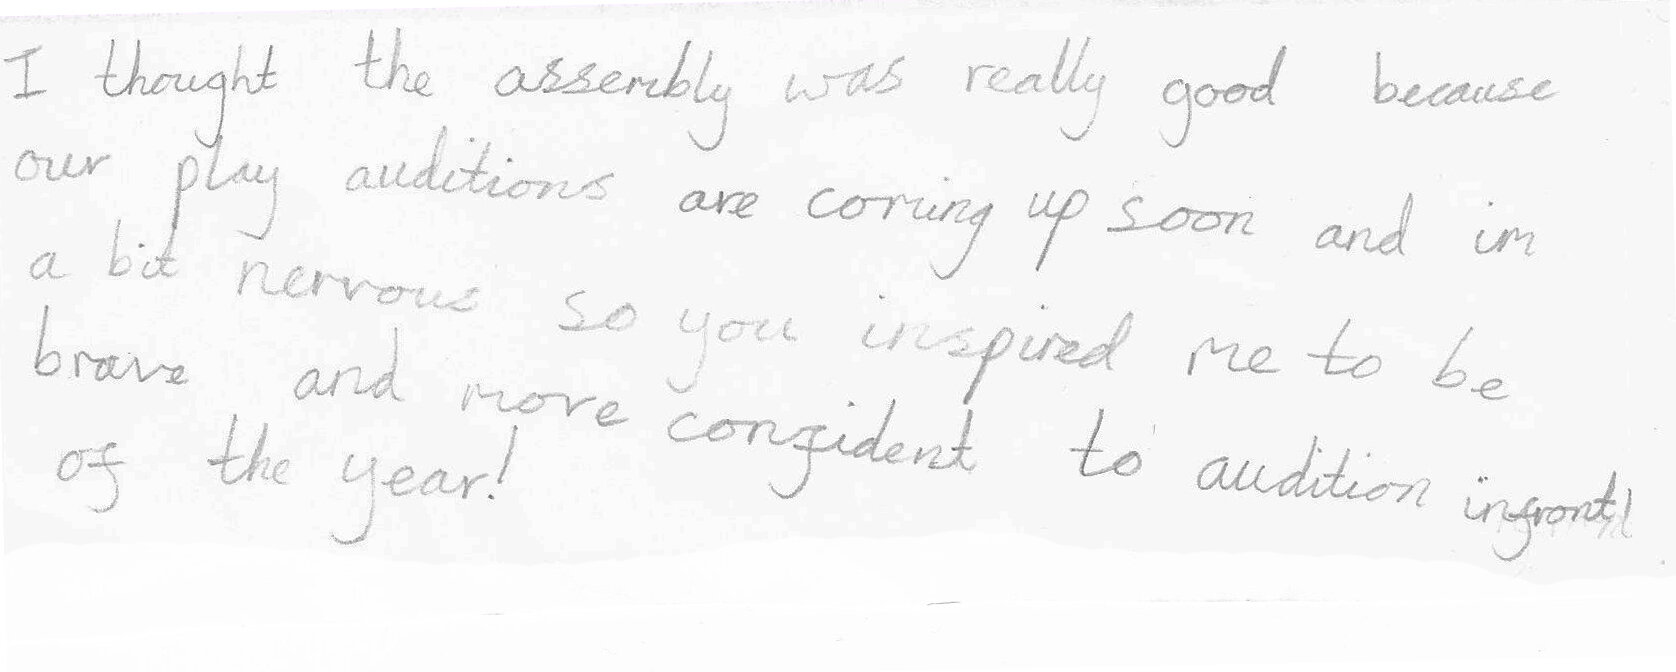 I thought the assembly was really good because
our play auditions are coming up soon and im
a bit nervous so you inspired me to be
brave and more confident to audition infront
of the year!